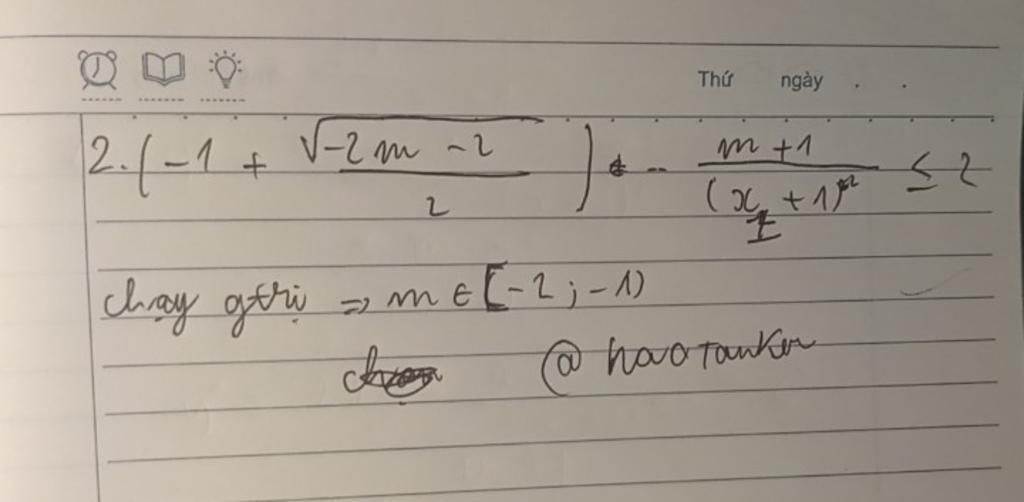 Thứ ngày . .
2.(-1 + √-2m - 2 / 2) - m+1 / (x_I + 1)² ≤ 2
chạy gtrị => m ∈ [-2 ; -1)
@ haoTanker